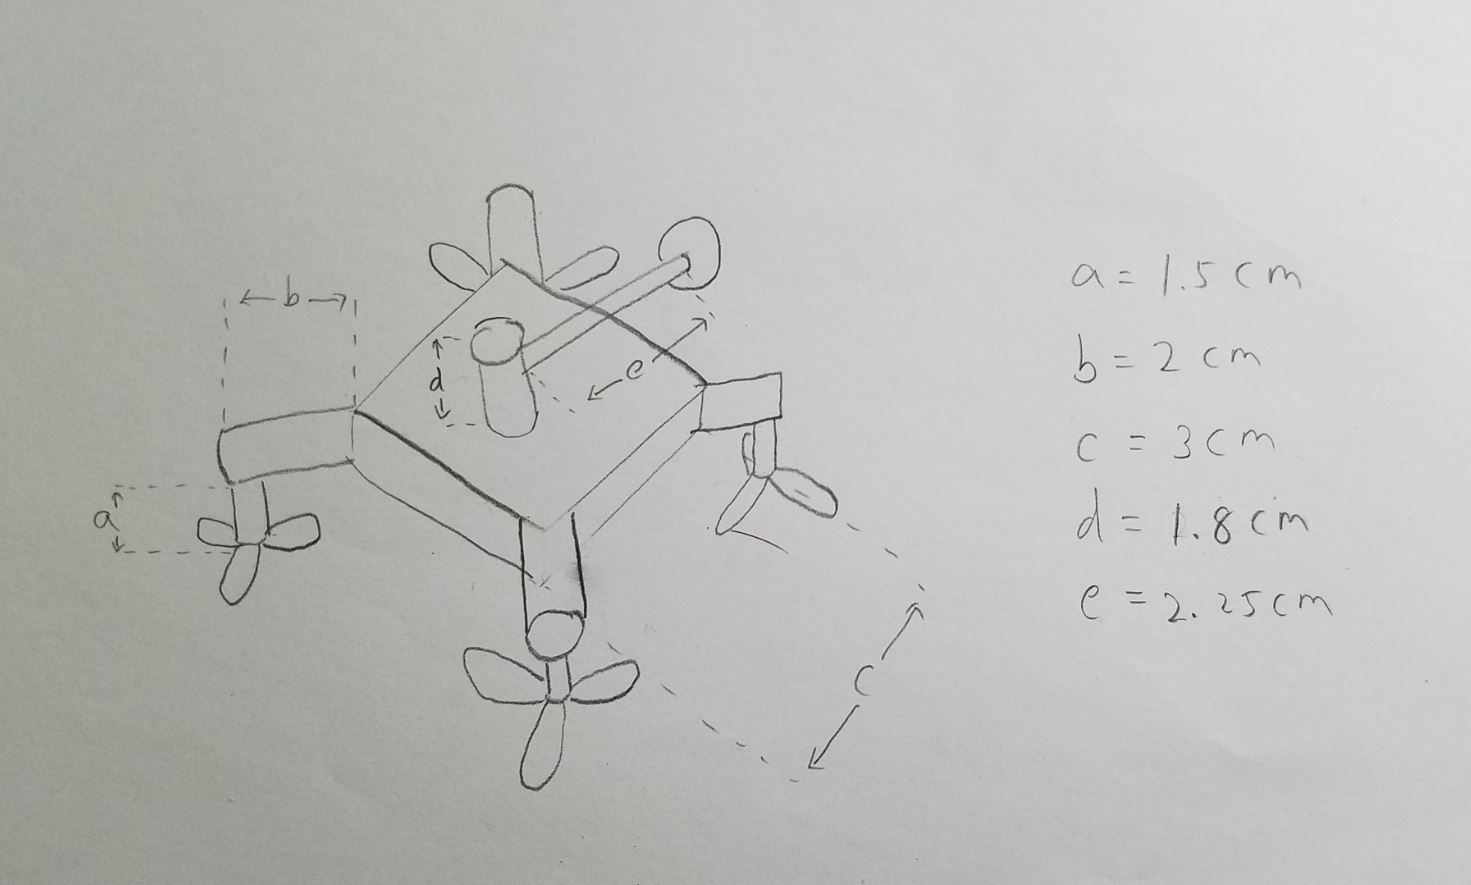 b
d
e
a
c
a = 1.5 cm
b = 2 cm
c = 3 cm
d = 1.8 cm
e = 2.25 cm